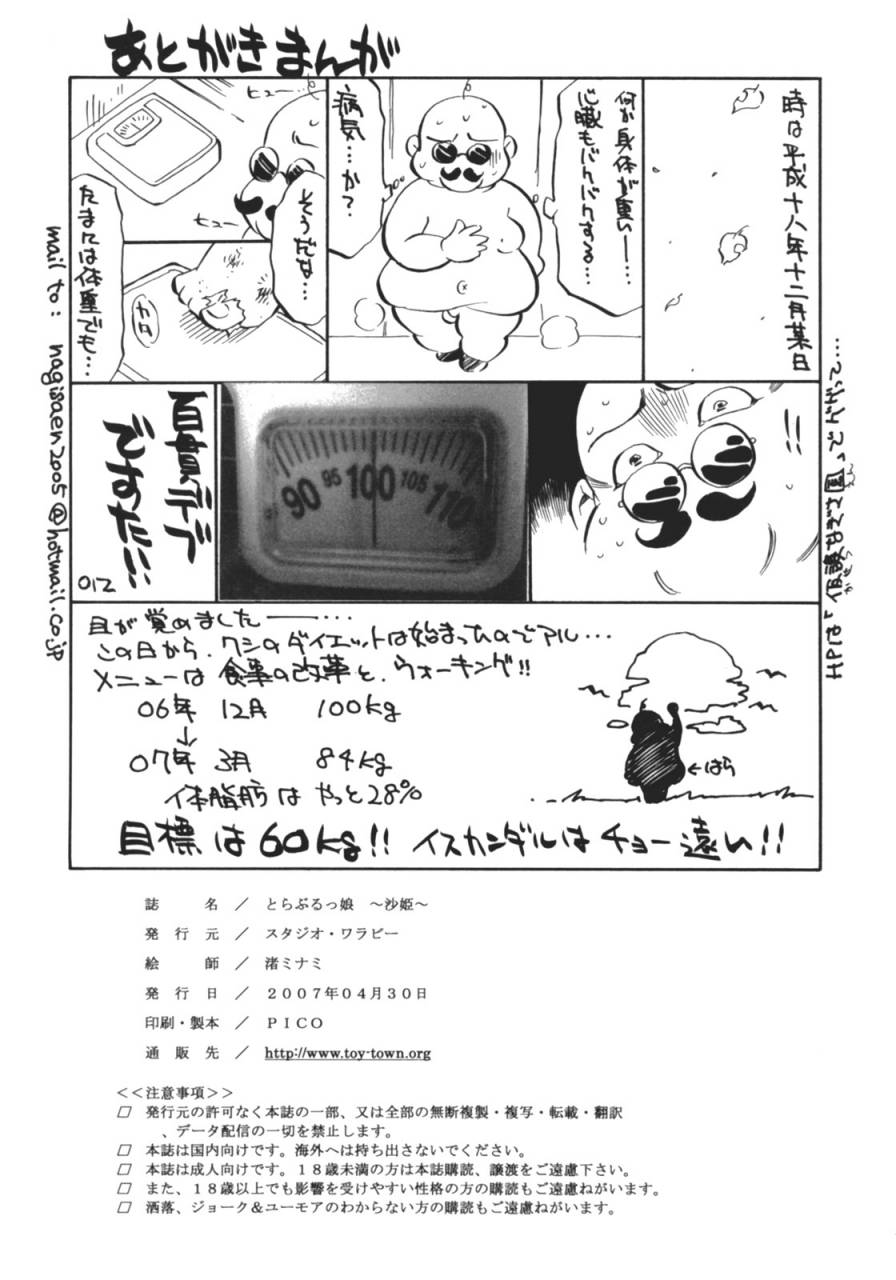 あとがきまんが
時は平成十八年十二月某日
何か身体が重いー…
心臓もバクバクする…
病気…か？
ヒュー
そうだな…
ヒュー
たまには体重でも…
カタ
!!
90 95 100 105 110
百貫デブ
ですた!!!
012
目が覚めましたー…
この日から、ワシのダイエットは始まったのでアル…
メニューは 食事の改革と、ウォーキング!!
06年 12月 100kg
↓
07年 3月 84kg
体脂肪は やっと28%
←はら
目標は60kg!! イスカンダルはチョー遠い!!
mail to: nagisaen2005@hotmail.co.jp
誌　　名　／　とらぶるっ娘　～沙姫～
発 行 元　／　スタジオ・ワラビー
絵　　師　／　渚ミナミ
発 行 日　／　２００７年０４月３０日
印刷・製本　／　ＰＩＣＯ
通 販 先　／　http://www.toy-town.org
<<注意事項>>
□　発行元の許可なく本誌の一部、又は全部の無断複製・複写・転載・翻訳
、データ配信の一切を禁止します。
□　本誌は国内向けです。海外へは持ち出さないでください。
□　本誌は成人向けです。１８歳未満の方は本誌購読、譲渡をご遠慮下さい。
□　また、１８歳以上でも影響を受けやすい性格の方の購読もご遠慮ねがいます。
□　洒落、ジョーク＆ユーモアのわからない方の購読もご遠慮ねがいます。